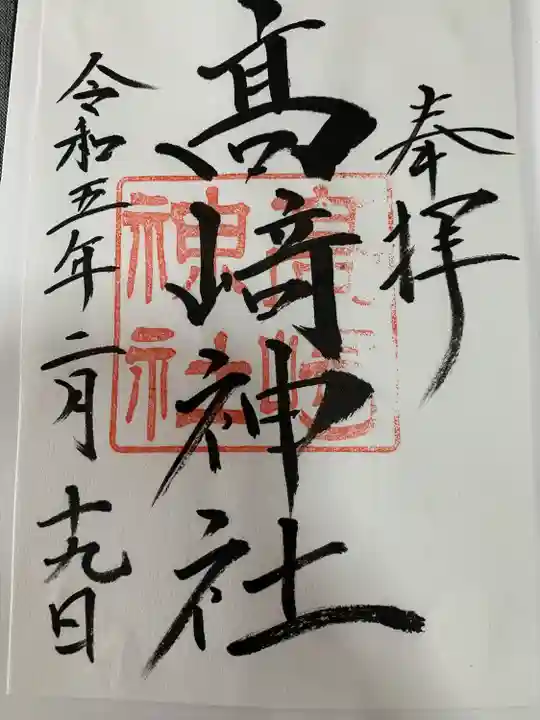 奉拝
髙﨑神社
令和五年二月十九日
髙﨑
神社